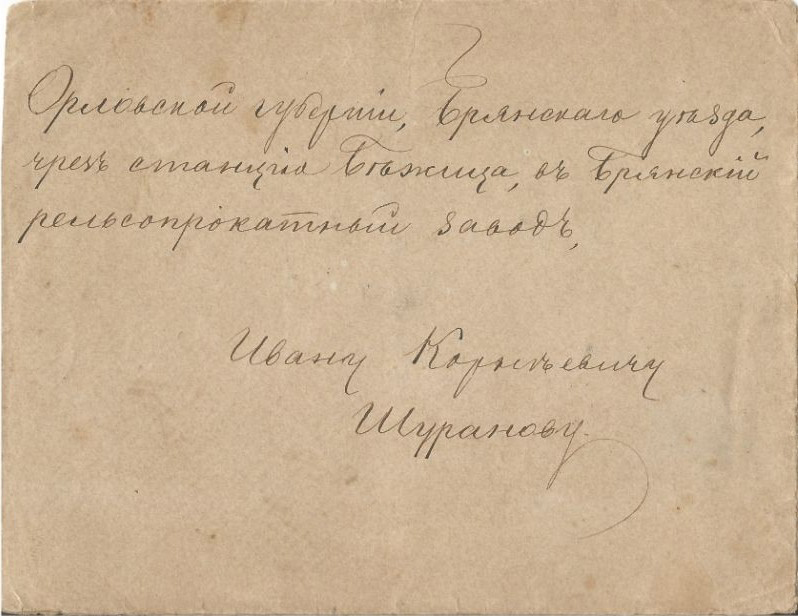 Орловской губернiи, Брянскаго уѣзда,
чрезъ станцiю Бѣжица, въ Брянскiй
рельсопрокатный заводъ,
Ивану Корнѣевичу
Шуранову.